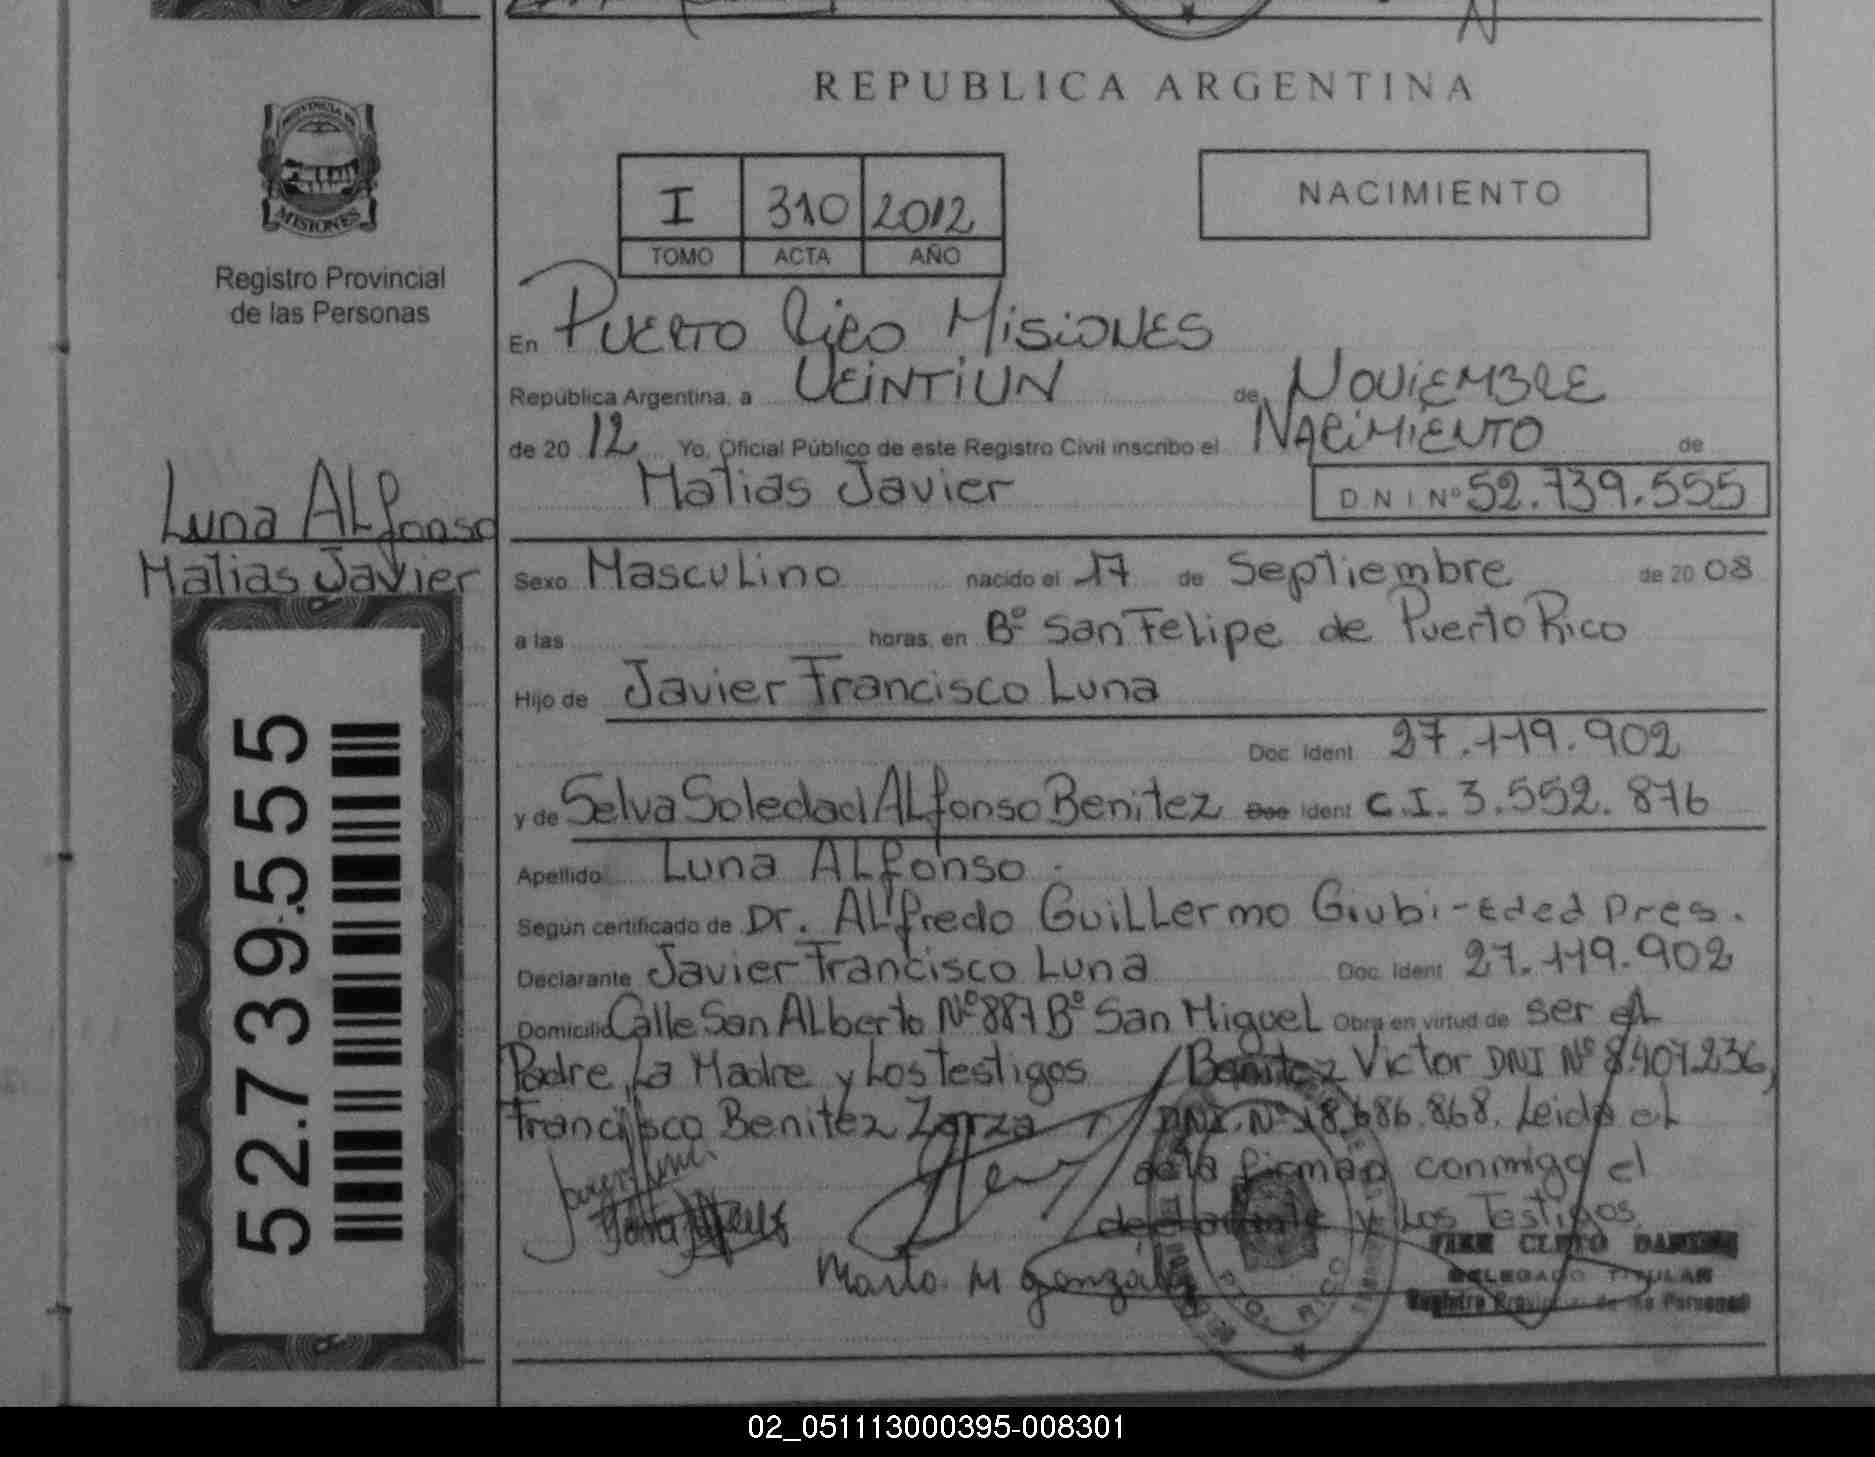 REPUBLICA ARGENTINA
PROVINCIA DE
MISIONES
Registro Provincial
de las Personas
I 310 2012
TOMO ACTA AÑO
NACIMIENTO
En Puerto Rico Misiones
República Argentina, a Veintiun de Noviembre
de 20 12 Yo, Oficial Público de este Registro Civil inscribo el Nacimiento de
Matias Javier D N I Nº 52.739.555
Luna Alfonso
Matias Javier
52.739.555
Sexo Masculino nacido el 17 de Septiembre de 20 08
a las horas, en Bº San Felipe de Puerto Rico
Hijo de Javier Francisco Luna
Doc. Ident. 27.119.902
y de Selva Soledad Alfonso Benitez Doc Ident C.I. 3.552.876
Apellido Luna Alfonso.
Según certificado de Dr. Alfredo Guillermo Giubi - Edad Pres.
Declarante Javier Francisco Luna Doc. Ident 27.119.902
Domicilio Calle San Alberto Nº 887 Bº San Miguel Obra en virtud de ser el
Padre, La Madre y Los testigos Benitez Victor DNI Nº 8.407.236,
Francisco Benitez Zarza DNI. Nº 18.686.868. Leida el
acta firman conmigo el
declarante y Los Testigos.
González
DELEGADO TITULAR
Registro Provincial de las Personas
PTO. RICO
02_051113000395-008301